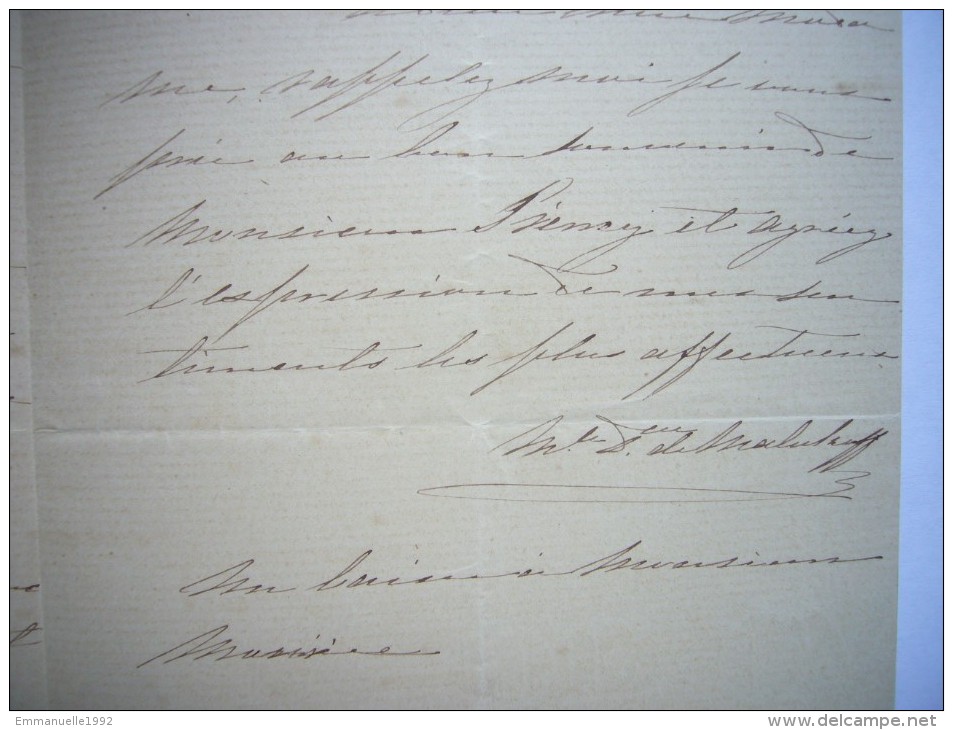 Mada
me, rappelez moi je vous
prie au bon souvenir de
Monsieur et agréez
l'expression de mes sen
timents les plus affectueux
de
Un baiser à Monsieur
Maurice
Emmanuelle1992
www.delcampe.net